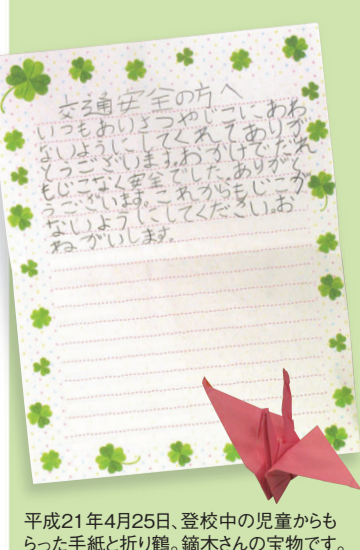 交通安全の方へ
いつもあいさつやじこにあわ
ないようにしてくれてありが
とうございます。わかけでだれ
もじこなく安全でした。ありがと
うございます。これからもじこが
ないようにしてください。お
ねがいします。
平成21年4月25日、登校中の児童からも
らった手紙と折り鶴。鏑木さんの宝物です。